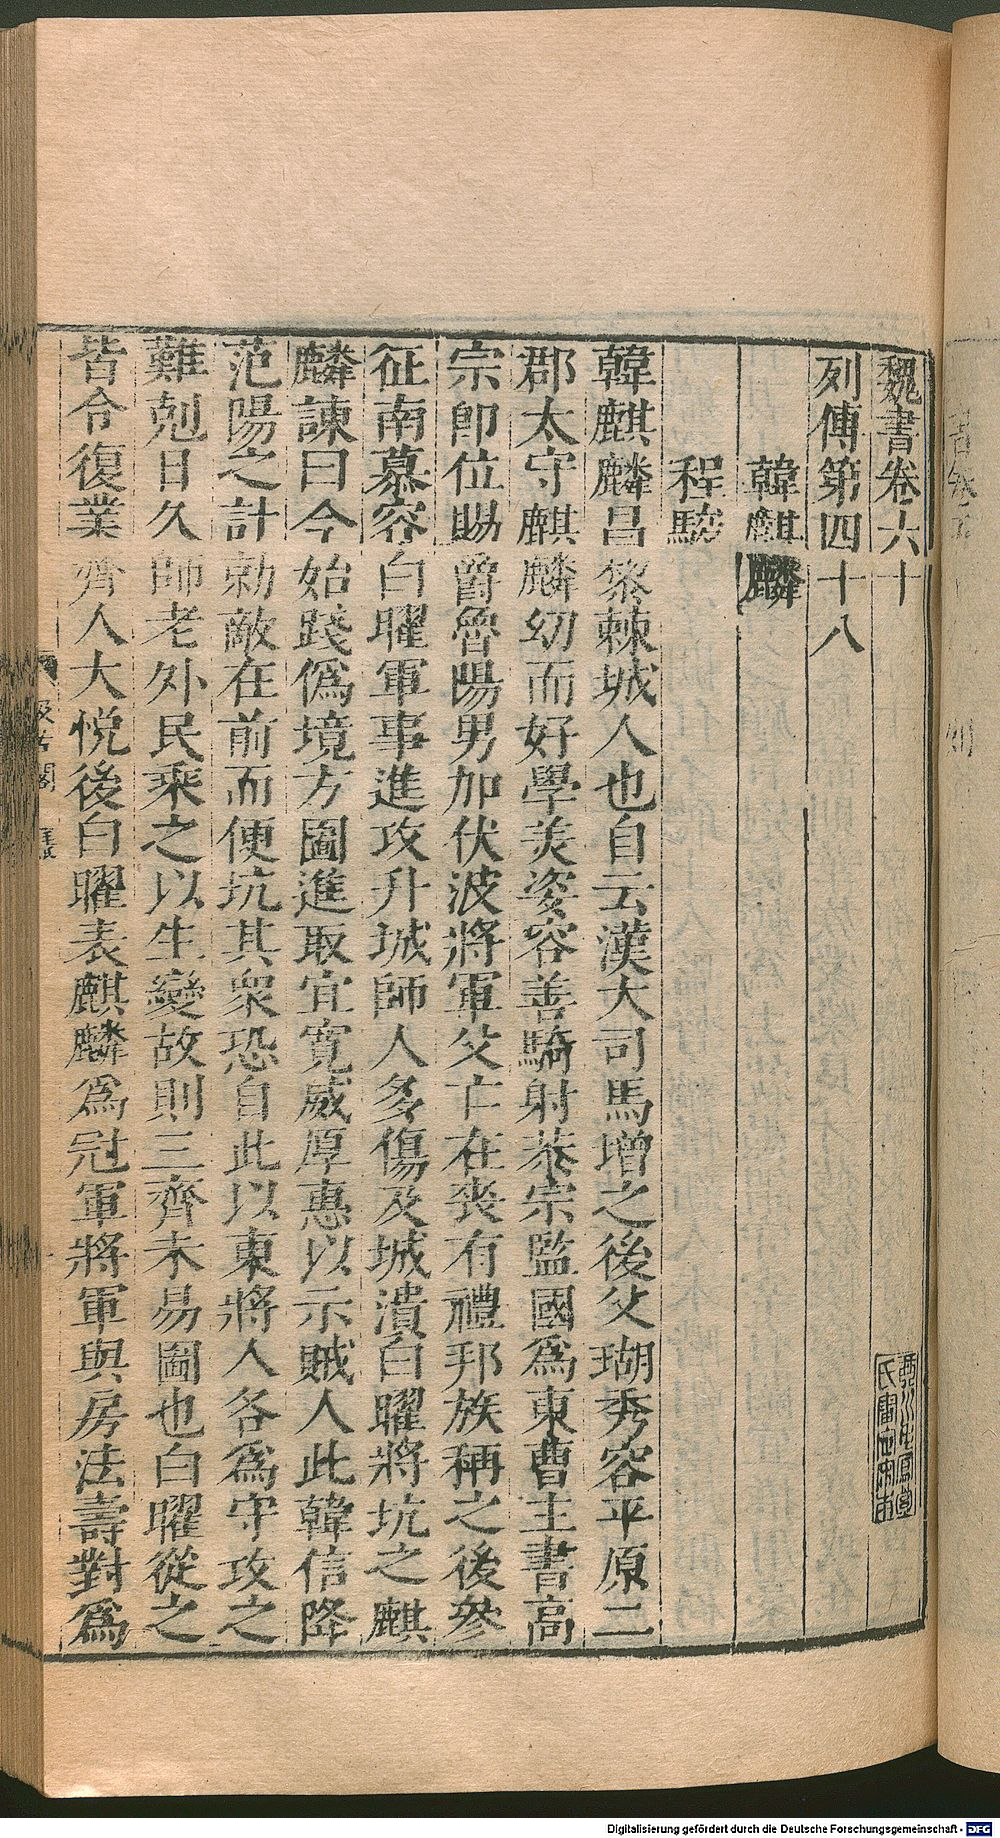 魏書卷六十
列傳第四十八
韓麒麟
程駿
韓麒麟昌黎棘城人也自云漢大司馬增之後父瑚秀容平原二
郡太守麒麟幼而好學美姿容善騎射恭宗監國爲東曹主書高
宗即位賜爵魯陽男加伏波將軍父亡在喪有禮邦族稱之後參
征南慕容白曜軍事進攻升城師人多傷及城潰白曜將坑之麒
麟諫曰今始踐僞境方圖進取宜寬威厚惠以示賊人此韓信降
范陽之計勍敵在前而便坑其衆恐自此以東將人各爲守攻之
難剋日久師老外民乘之以生變故則三齊未易圖也白曜從之
皆令復業齊人大悅後白曜表麒麟爲冠軍將軍與房法壽對爲
汲古閣
Digitalisierung gefördert durch die Deutsche Forschungsgemeinschaft - DFG